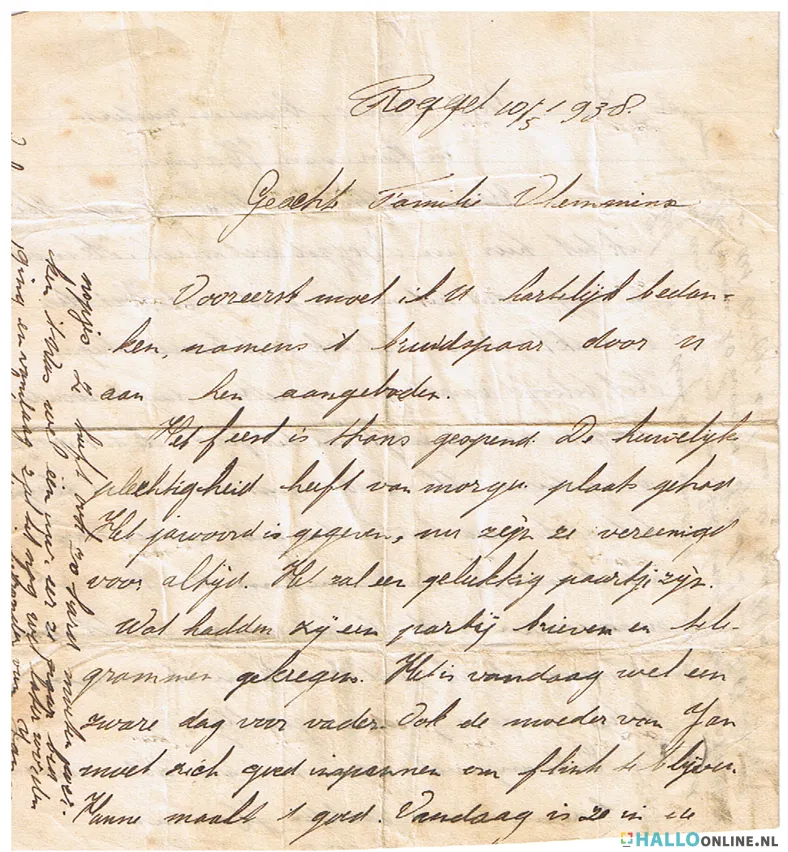 Roggel 10/5 1938.
Geachte Familie Vlemminx
Vooreerst moet ik U hartelijk bedan-
ken, namens 't bruidspaar door U
aan hen aangeboden.
Het feest is thans geopend. De huwelijk
plechtigheid heeft van morgen plaats gehad
Het jawoord is gegeven, nu zijn ze vereenigd
voor altijd. Het zal een gelukkig paartje zijn.
Wat hadden zij een partij brieven en tele-
grammen gekregen. Het is vandaag wel een
zware dag voor vader. Ook de moeder van Jan
moet zich goed inspannen om flink te blijven.
Hanne maakt 't goed. Vandaag is ze in de
nopjes Z heeft niet zo hard
't was wel één uur eer ze naar bed
ging en vandaag zal 't nog wel later worden
van Jan
HALLOONLINE.NL